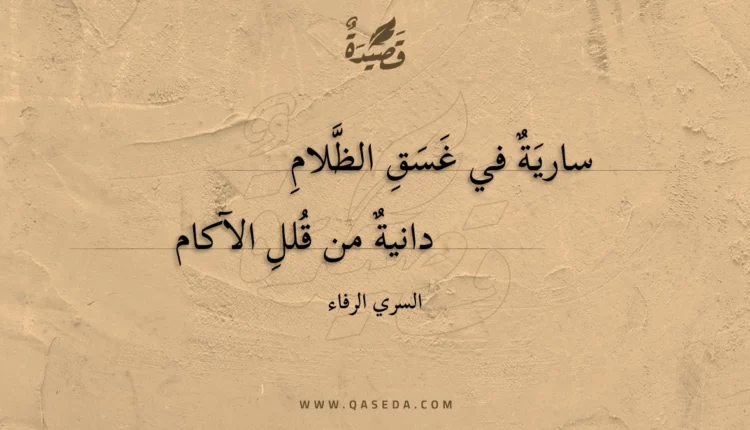 قَصِيدَةٌ
ساريَةٌ في غَسَقِ الظَّلامِ
دانيةٌ من قُللِ الآكام
السري الرفاء
WWW.QASEDA.COM